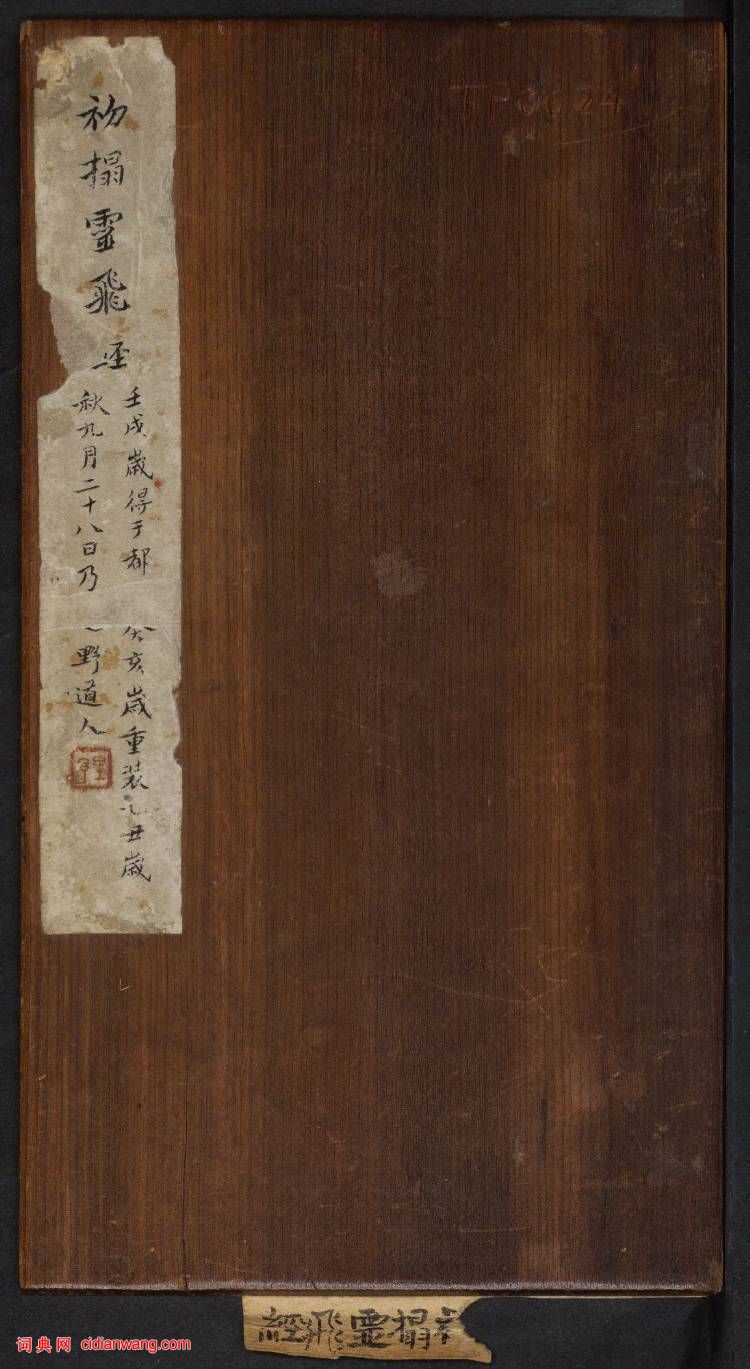 初搨靈飛经
壬戌歲得于都 癸亥歲重装乙丑歲
秋九月二十八日乃 野道人
搨靈飛經
词典网 cidianwang.com